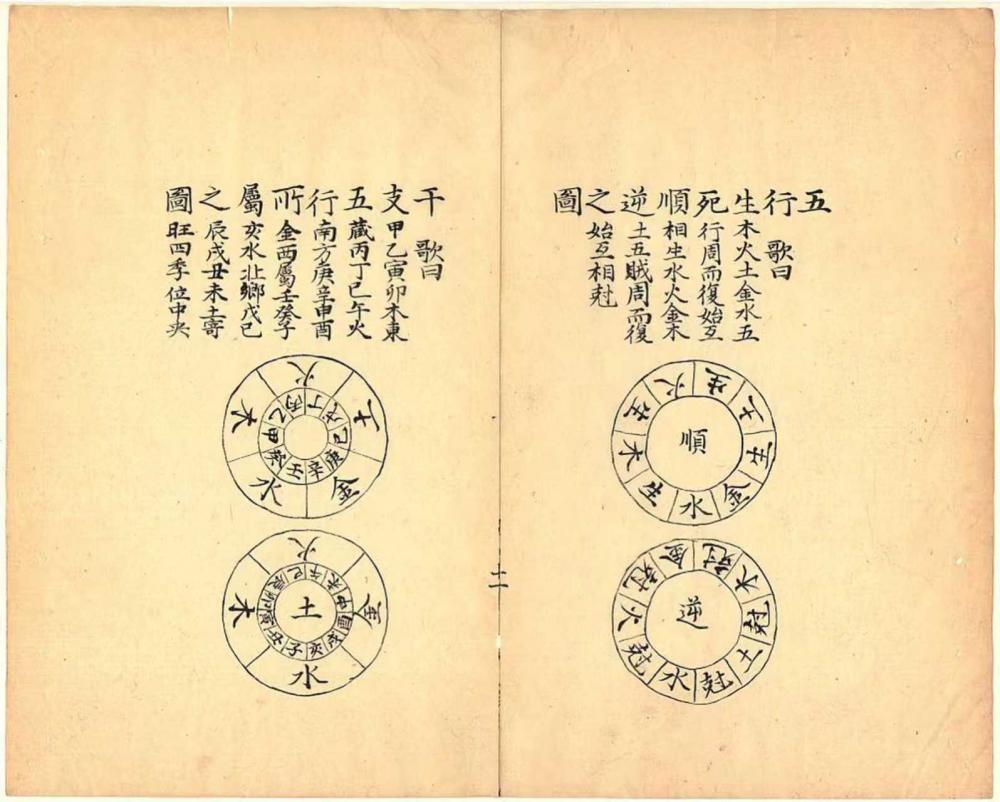 五
行歌曰
生木火土金水五
死行周而復始互
順相生水火金木
逆土五賊周而復
之始互相尅
圖
順
火生土生金水生木生
逆
金尅木尅土尅水尅火尅
干歌曰
支甲乙寅卯木東
五藏丙丁巳午火
行南方庚辛申酉
所金西屬壬癸子
屬亥水北鄉戊己
之辰戌丑未土寄
圖旺四季位中央
火土金水木
丙丁戊己庚辛壬癸甲乙
火金水木
巳午未申酉戌亥子丑寅卯辰
土